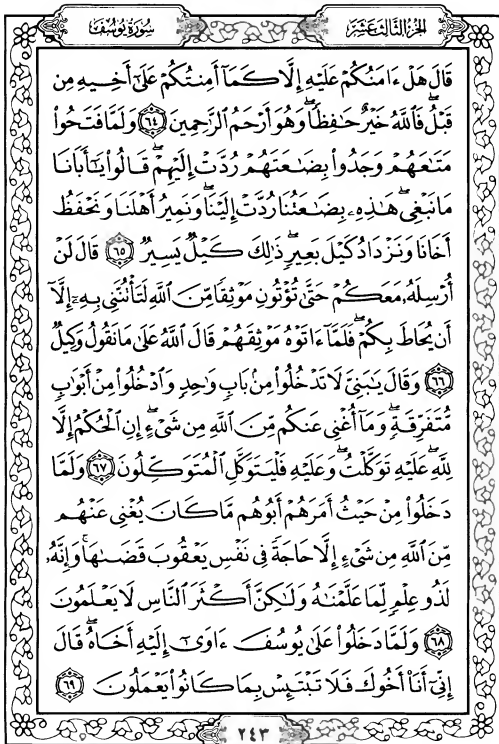 سُورَةُ يُوسُفَ
الجزء الثالث عشر
قَالَ هَلْ ءَامَنُكُمْ عَلَيْهِ إِلَّا كَمَآ أَمِنتُكُمْ عَلَىٰٓ أَخِيهِ مِن
قَبْلُ فَٱللَّهُ خَيْرٌ حَٰفِظًا ۖ وَهُوَ أَرْحَمُ ٱلرَّٰحِمِينَ ٦٤ وَلَمَّا فَتَحُوا۟
مَتَٰعَهُمْ وَجَدُوا۟ بِضَٰعَتَهُمْ رُدَّتْ إِلَيْهِمْ ۖ قَالُوا۟ يَٰٓأَبَانَا
مَا نَبْغِى ۖ هَٰذِهِۦ بِضَٰعَتُنَا رُدَّتْ إِلَيْنَا ۖ وَنَمِيرُ أَهْلَنَا وَنَحْفَظُ
أَخَانَا وَنَزْدَادُ كَيْلَ بَعِيرٍ ۖ ذَٰلِكَ كَيْلٌ يَسِيرٌ ٦٥ قَالَ لَنْ
أُرْسِلَهُۥ مَعَكُمْ حَتَّىٰ تُؤْتُونِ مَوْثِقًا مِّنَ ٱللَّهِ لَتَأْتُنَّنِى بِهِۦٓ إِلَّآ
أَن يُحَاطَ بِكُمْ ۖ فَلَمَّآ ءَاتَوْهُ مَوْثِقَهُمْ قَالَ ٱللَّهُ عَلَىٰ مَا نَقُولُ وَكِيلٌ
٦٦ وَقَالَ يَٰبَنِىَّ لَا تَدْخُلُوا۟ مِنۢ بَابٍ وَٰحِدٍ وَٱدْخُلُوا۟ مِنْ أَبْوَٰبٍ
مُّتَفَرِّقَةٍ ۖ وَمَآ أُغْنِى عَنكُم مِّنَ ٱللَّهِ مِن شَىْءٍ ۖ إِنِ ٱلْحُكْمُ إِلَّا
لِلَّهِ ۖ عَلَيْهِ تَوَكَّلْتُ ۖ وَعَلَيْهِ فَلْيَتَوَكَّلِ ٱلْمُتَوَكِّلُونَ ٦٧ وَلَمَّا
دَخَلُوا۟ مِنْ حَيْثُ أَمَرَهُمْ أَبُوهُم مَّا كَانَ يُغْنِى عَنْهُم
مِّنَ ٱللَّهِ مِن شَىْءٍ إِلَّا حَاجَةً فِى نَفْسِ يَعْقُوبَ قَضَىٰهَا ۚ وَإِنَّهُۥ
لَذُو عِلْمٍ لِّمَا عَلَّمْنَٰهُ وَلَٰكِنَّ أَكْثَرَ ٱلنَّاسِ لَا يَعْلَمُونَ
٦٨ وَلَمَّا دَخَلُوا۟ عَلَىٰ يُوسُفَ ءَاوَىٰٓ إِلَيْهِ أَخَاهُ ۖ قَالَ
إِنِّىٓ أَنَا۠ أَخُوكَ فَلَا تَبْتَئِسْ بِمَا كَانُوا۟ يَعْمَلُونَ ٦٩
٢٤٣